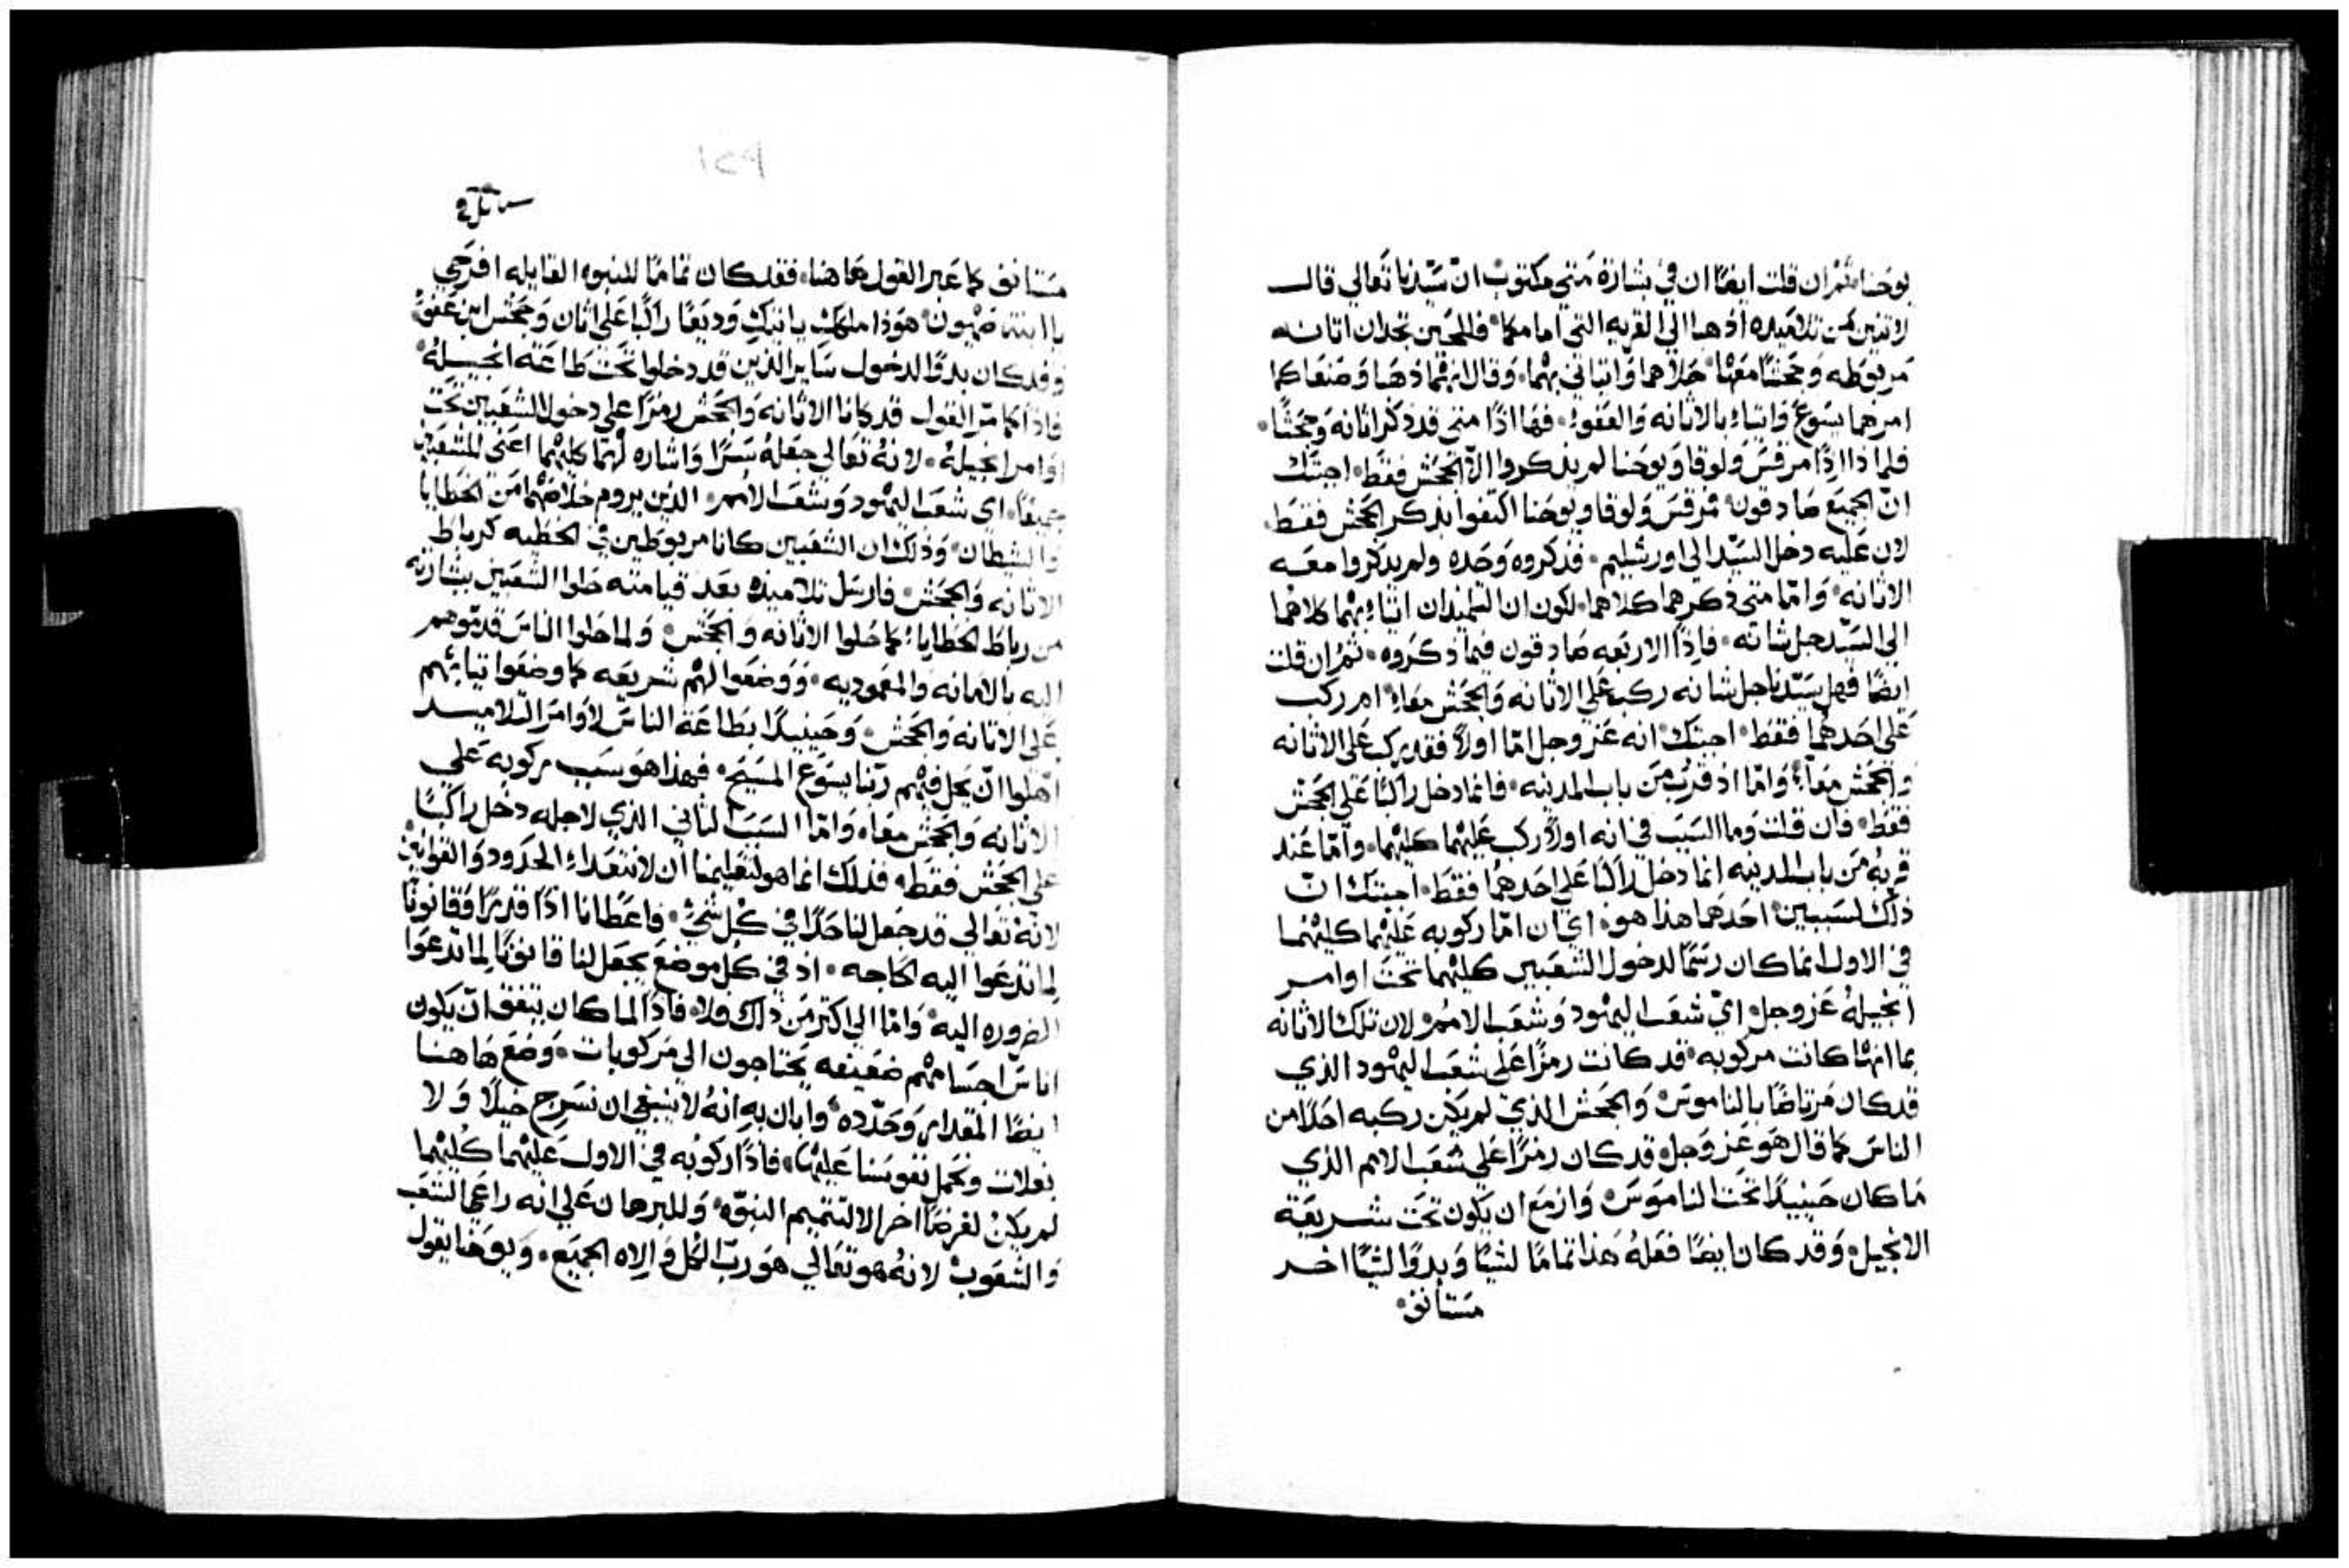 يوحنا، ثم ان قلت ايضًا ان في بشارة متي مكتوب ان سيّدنا تعالي قال
لاتنين من تلاميده ادهبا الي القريه التي امامكما، فللحين تجدان اتانه
مربوطه وجحشًا معها، حلاهما واتياني بهما، وقال انهما دهبا وصنعا كما
امرهما يسوع واتياء بالاتانه والعفو، فها ادًا متي قد دكر اتانه وجحشًا،
فلما دا ادًا مرقس ولوقا ويوحنا لم يدكروا الّا الجحش فقط، اجبتك
انّ الجميع صادقون، مرقس ولوقا ويوحنا اكتفوا بدكر الجحش فقط،
لان عليه دخل السيّد الي اورشليم، فدكروه وحده ولم يدكروا معه
الاتانه، وامّا متي دكرهما كلاهما، لكون ان التلميدان اتياء بهما كلاهما
الي السيّد جل شانه، فادًا الاربعه صادقون فيما دكروه، ثم ان قلت
ايضًا فهل سيّدنا جل شانه ركب علي الاتانه والجحش معاء، ام ركب
علي احدهما فقط، اجبتك، انه عز وجل امّا اولًا فقد ركب علي الاتانه
والجحش معًا، وامّا اد قرب من باب المدينه، فانما دخل راكبًا علي الجحش
فقط، فان قلت وما السبب في انه اولًا ركب عليهما كليهما، وامّا عند
قربه من باب المدينه انما دخل راكبًا علي احدهما فقط، اجبتك انّ
دلك لسببين، احدهما هدا هو، اي ان امّا ركوبه عليهما كليهما
في الاول انما كان رسمًا لدخول الشعبين كليهما تحت اوامر
انجيله عز وجل، ايّ شعب اليهود وشعب الامم، لان تلك الاتانه
بما انها كانت مركوبه، قد كانت رمزًا علي شعب اليهود الدي
قد كان مرتاضًا بالناموس، والجحش الدي لم يكن ركبه احدًا من
الناس كما قال هو عز وجل، قد كان رمزًا علي شعب الامم الدي
ما كان حينيدًا تحت الناموس، وازمع ان يكون تحت شريعة
الانجيل، وقد كان ايضًا فعله هدا تمامًا لشيًا وبدوًا لشيًا اخر
مستانف،
١٢٩
مستانف كما عبر القول هاهنا، فقد كان تمامًا للنبوه القايله افرحي
يا ابنة صهيون، هودا ملكك ياتيك وديعًا راكبًا علي اتان وجحش ابن عفو،
وقد كان بدوًا لدخول ساير الدين قد دخلوا تحت طاعة انجيله،
فادًا كما مرّ القول قد كانا الاتانه والجحش رمزًا علي دخول الشعبين تحت
اوامر انجيله، لانه تعالي جعله سرًا واشاره لهما كليهما اعني للشعبين
جميعًا، اي شعب اليهود وشعب الامم، الدين يروم خلاصهما من الخطايا
والشيطان، ودلك ان الشعبين كانا مربوطين في الخطيه كرباط
الاتانه والجحش، فارسل تلاميده بعد قيامته حلوا الشعبين ببشارته
من رباط الخطايا، كما حلوا الاتانه والجحش، ولما حلوا الناس قدّموهم
اليه بالامانه والمعموديه، ووضعوا لهم شريعه كما وضعوا تيابهم
علي الاتانه والجحش، وحينيدًا بطاعة الناس لاوامر التلاميد
اهلوا انّ يحل فيهم ربّنا يسوع المسيح، فهدا هو سبب ركوبه علي
الاتانه والجحش معًا، وامّا السبب التاني الدي لاجله دخل راكبًا
علي الجحش فقط، فدلك انما هو لتعليمنا ان لا نتعداء الحدود والقوانين
لانه تعالي قد جعل لنا حدًا في كل شيء، فاعطانا ادًا قدرًا وقانونًا
لما تدعوا اليه الحاجه، اد في كل موضع يجعل لنا قانونًا لما تدعوا
الضروره اليه، وامّا الي اكتر من دلك فلا، فادًا لما كان يتفق ان يكون
اناس اجسامهم ضعيفه يحتاجون الي مركوبات، وضع هاهنا
ايضًا المقدار وحدّده، وابان به انه لا ينبغي ان نسرج خيلًا ولا
بغلات ونحمل نفوسنا عليها، فادًا ركوبه في الاول عليهما كليهما
لم يكن لغرضًا اخر الا لتتميم النبوّه، وللبرهان علي انه راعي الشعب
والشعوب لانه هو تعالي هو ربّ الكل والاه الجميع، ويوحنا يقول